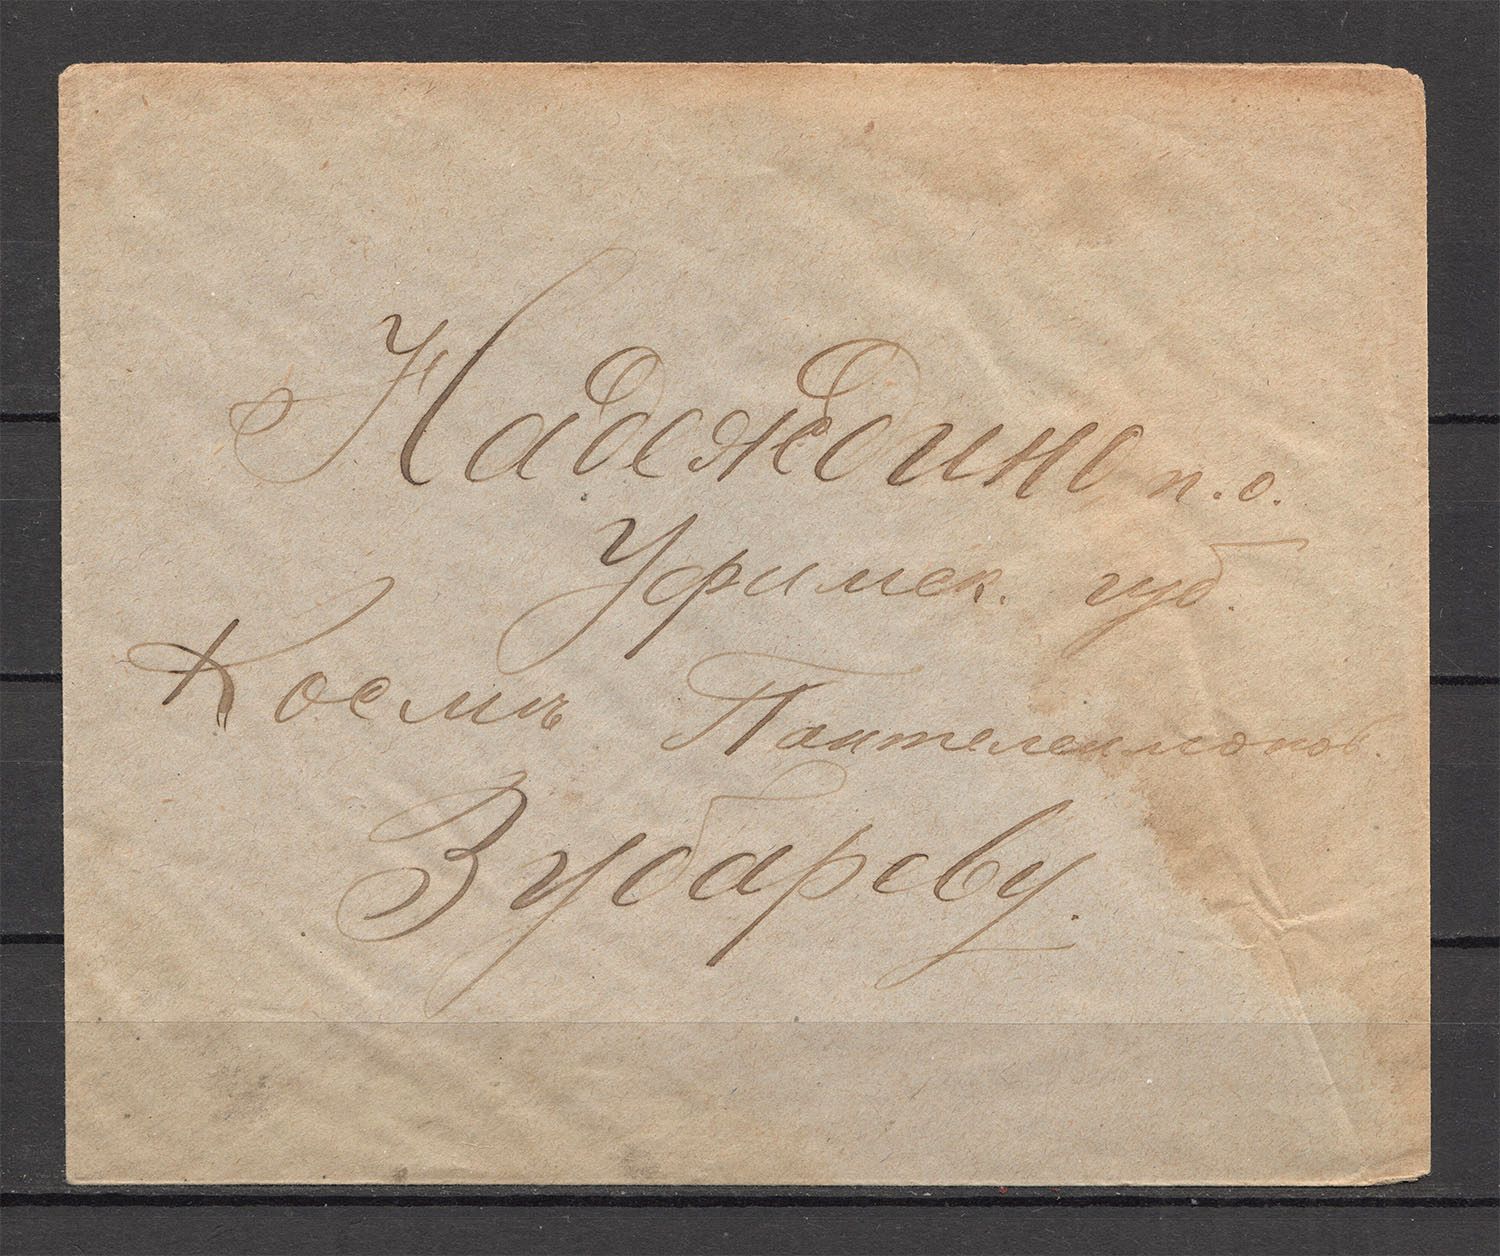 Надеждино п.о.
Уфимск. губ.
Космѣ Пантелеимонов.
Зубареву.